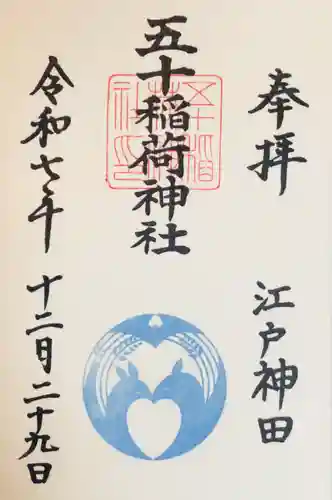 奉拝
江戸神田
五十稲荷神社
令和七年
十二月二十九日